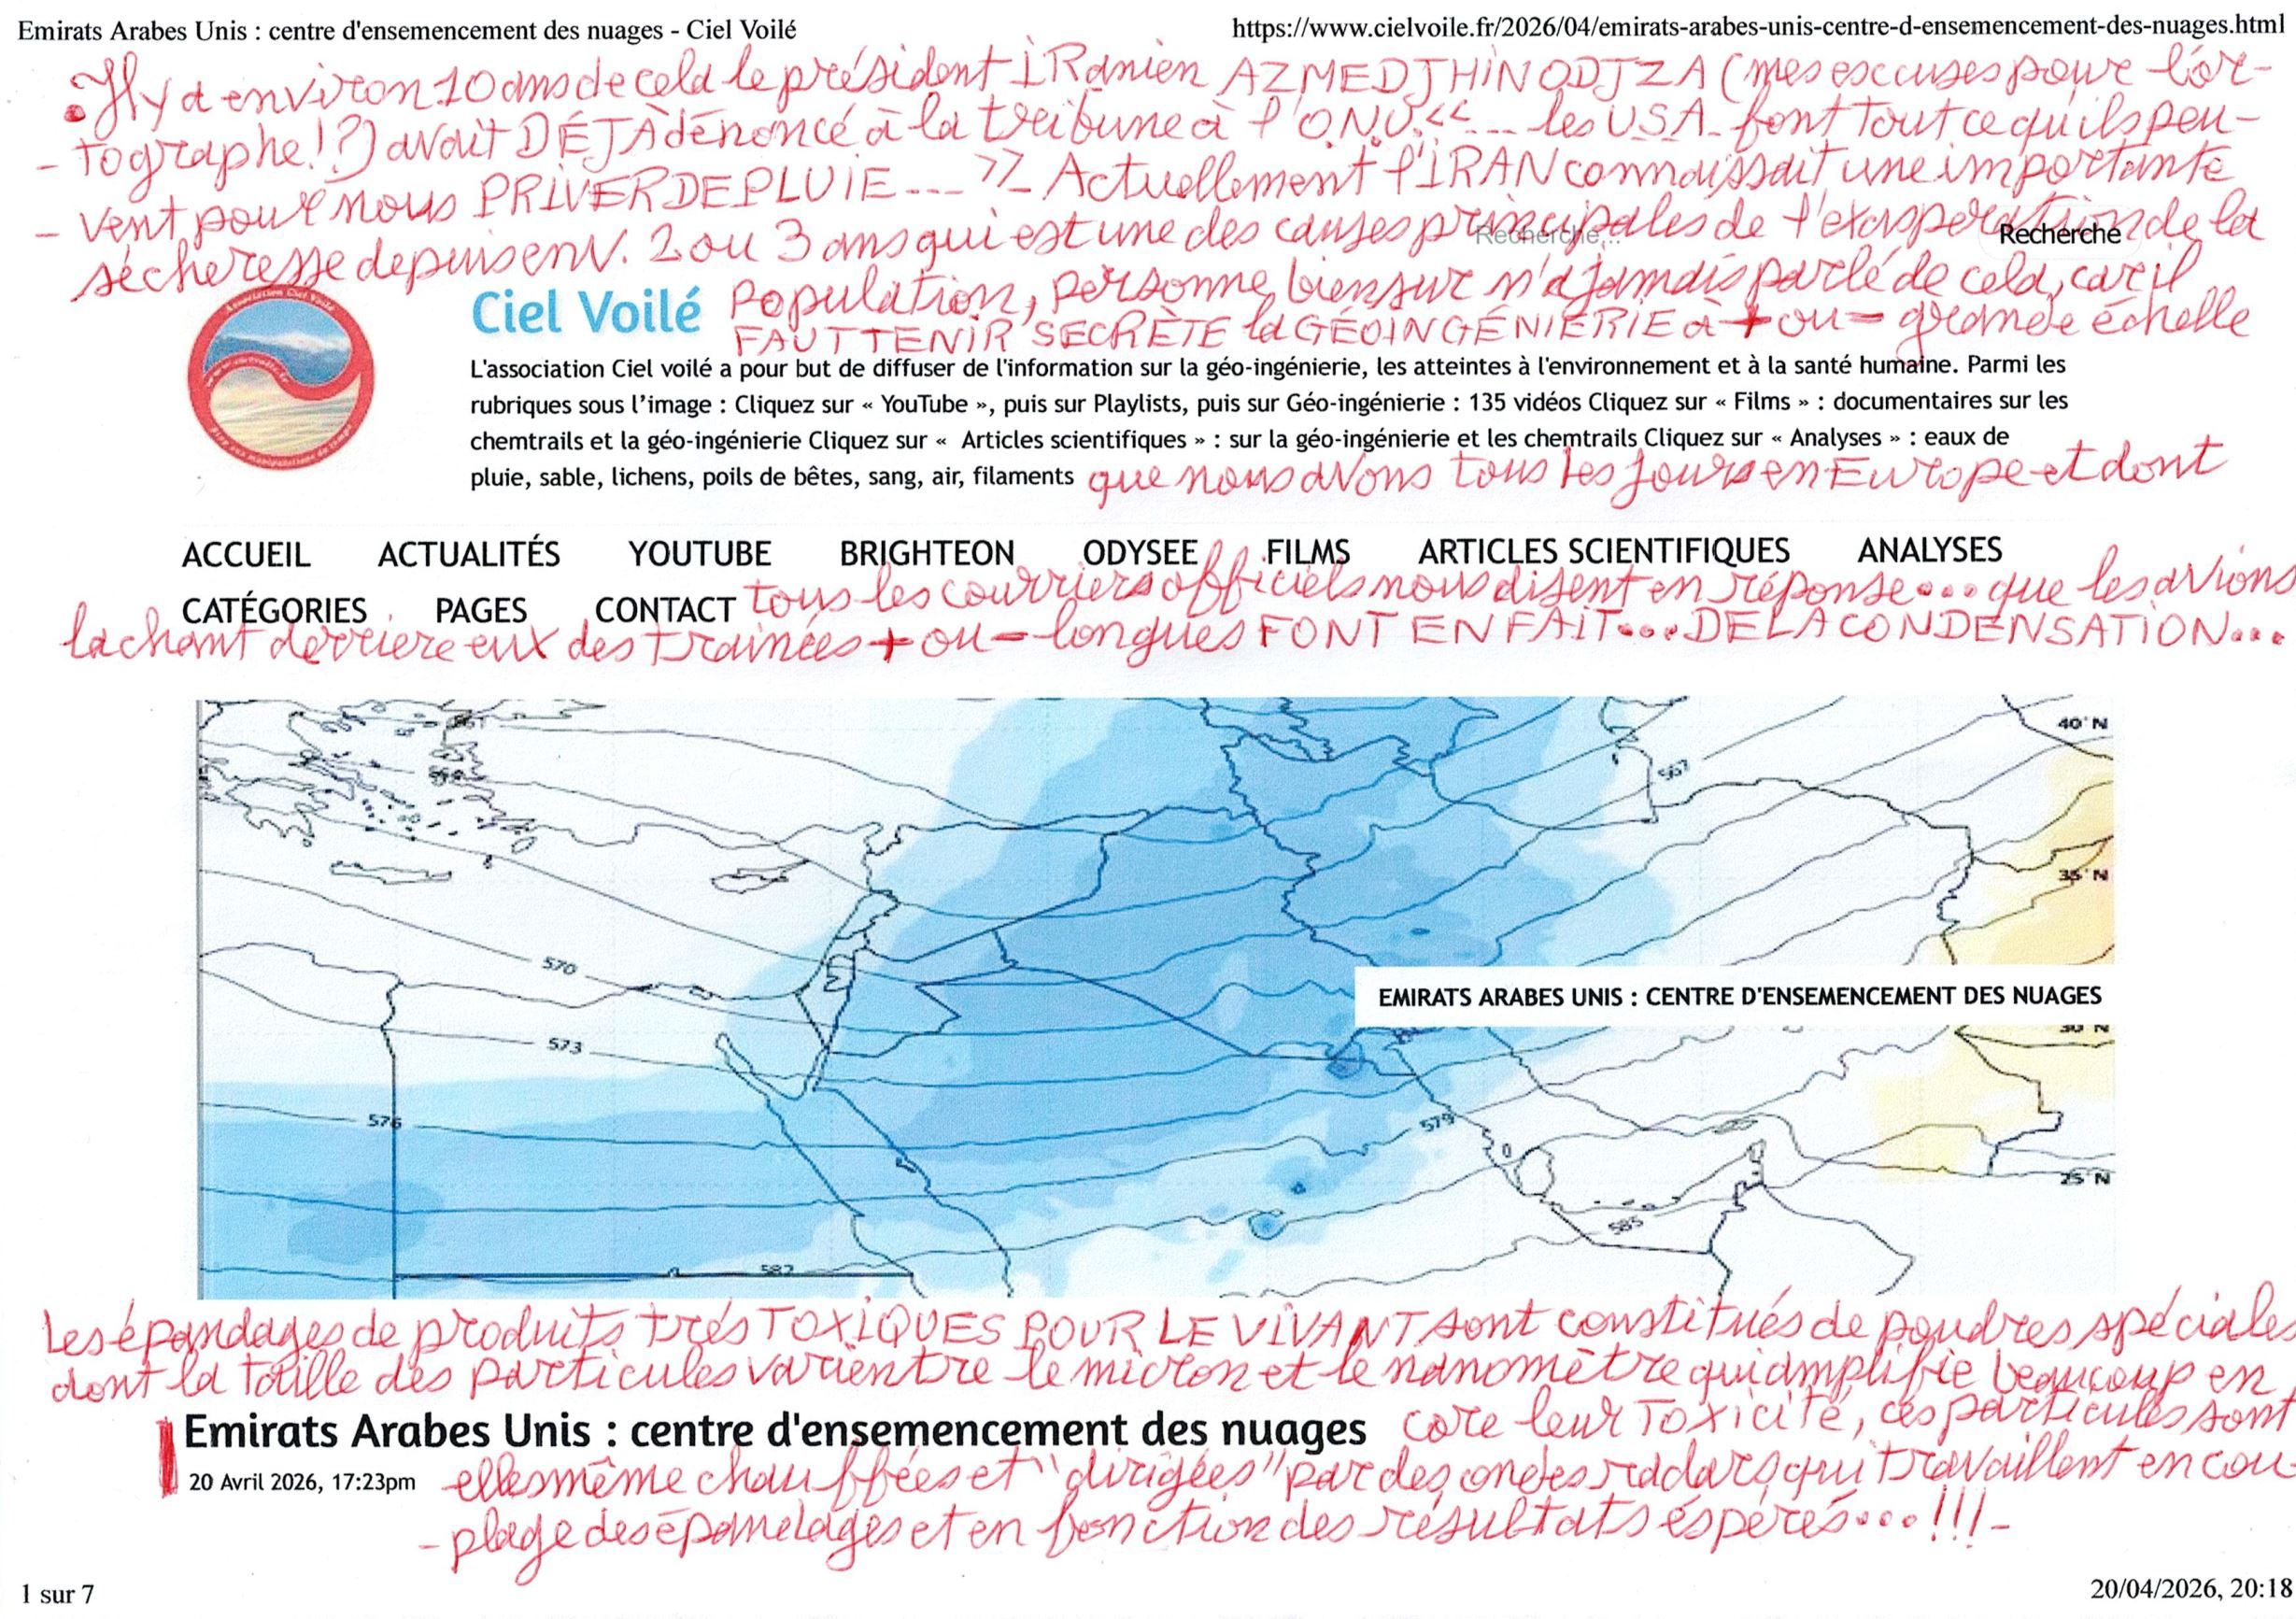 Emirats Arabes Unis : centre d'ensemencement des nuages - Ciel Voilé
https://www.cielvoile.fr/2026/04/emirats-arabes-unis-centre-d-ensemencement-des-nuages.html
. Il y a environ 10 ans de cela le président IRanien AZMEDJHINODJZA (mes escuses pour l'or-
- tographe!?) avait DÉJÀ dénoncé à la tribune à l'O.N.U. << ... les USA font tout ce qu'ils peu-
- vent pour nous PRIVER DE PLUIE ... >> - Actuellement l'IRAN connaissait une importante
sécheresse depuis env. 2 ou 3 ans qui est une des causes principales de l'exasperation de la
Recherche...
Recherche
Ciel Voilé
population, personne bien sur n'a jamais parlé de cela, car il
FAUT TENIR SECRÈTE la GÉOINGÉNIERIE à + ou - grande échelle
L'association Ciel voilé a pour but de diffuser de l'information sur la géo-ingénierie, les atteintes à l'environnement et à la santé humaine. Parmi les
rubriques sous l'image : Cliquez sur « YouTube », puis sur Playlists, puis sur Géo-ingénierie : 135 vidéos Cliquez sur « Films » : documentaires sur les
chemtrails et la géo-ingénierie Cliquez sur « Articles scientifiques » : sur la géo-ingénierie et les chemtrails Cliquez sur « Analyses » : eaux de
pluie, sable, lichens, poils de bêtes, sang, air, filaments que nous avons tous les jours en Europe et dont
ACCUEIL ACTUALITÉS YOUTUBE BRIGHTEON ODYSEE FILMS ARTICLES SCIENTIFIQUES ANALYSES
CATÉGORIES PAGES CONTACT tous les courriers officiels nous disent en réponse... que les avions
lachant derriere eux des trainées + ou - longues FONT EN FAIT... DE LA CONDENSATION...
40°N
567
35°N
570
EMIRATS ARABES UNIS : CENTRE D'ENSEMENCEMENT DES NUAGES
30°N
573
576
579
25°N
585
582
Les épandages de produits trés TOXIQUES POUR LE VIVANT sont constitués de poudres spéciales
dont la taille des particules varie entre le micron et le nanomètre qui amplifie beaucoup en
Emirats Arabes Unis : centre d'ensemencement des nuages
core leur toxicité, ces particules sont
20 Avril 2026, 17:23pm
elles même chauffées et "dirigées" par des ondes radars qui travaillent en cou
- plage des épandages et en fonction des résultats éspérés...!!! -
1 sur 7
20/04/2026, 20:18